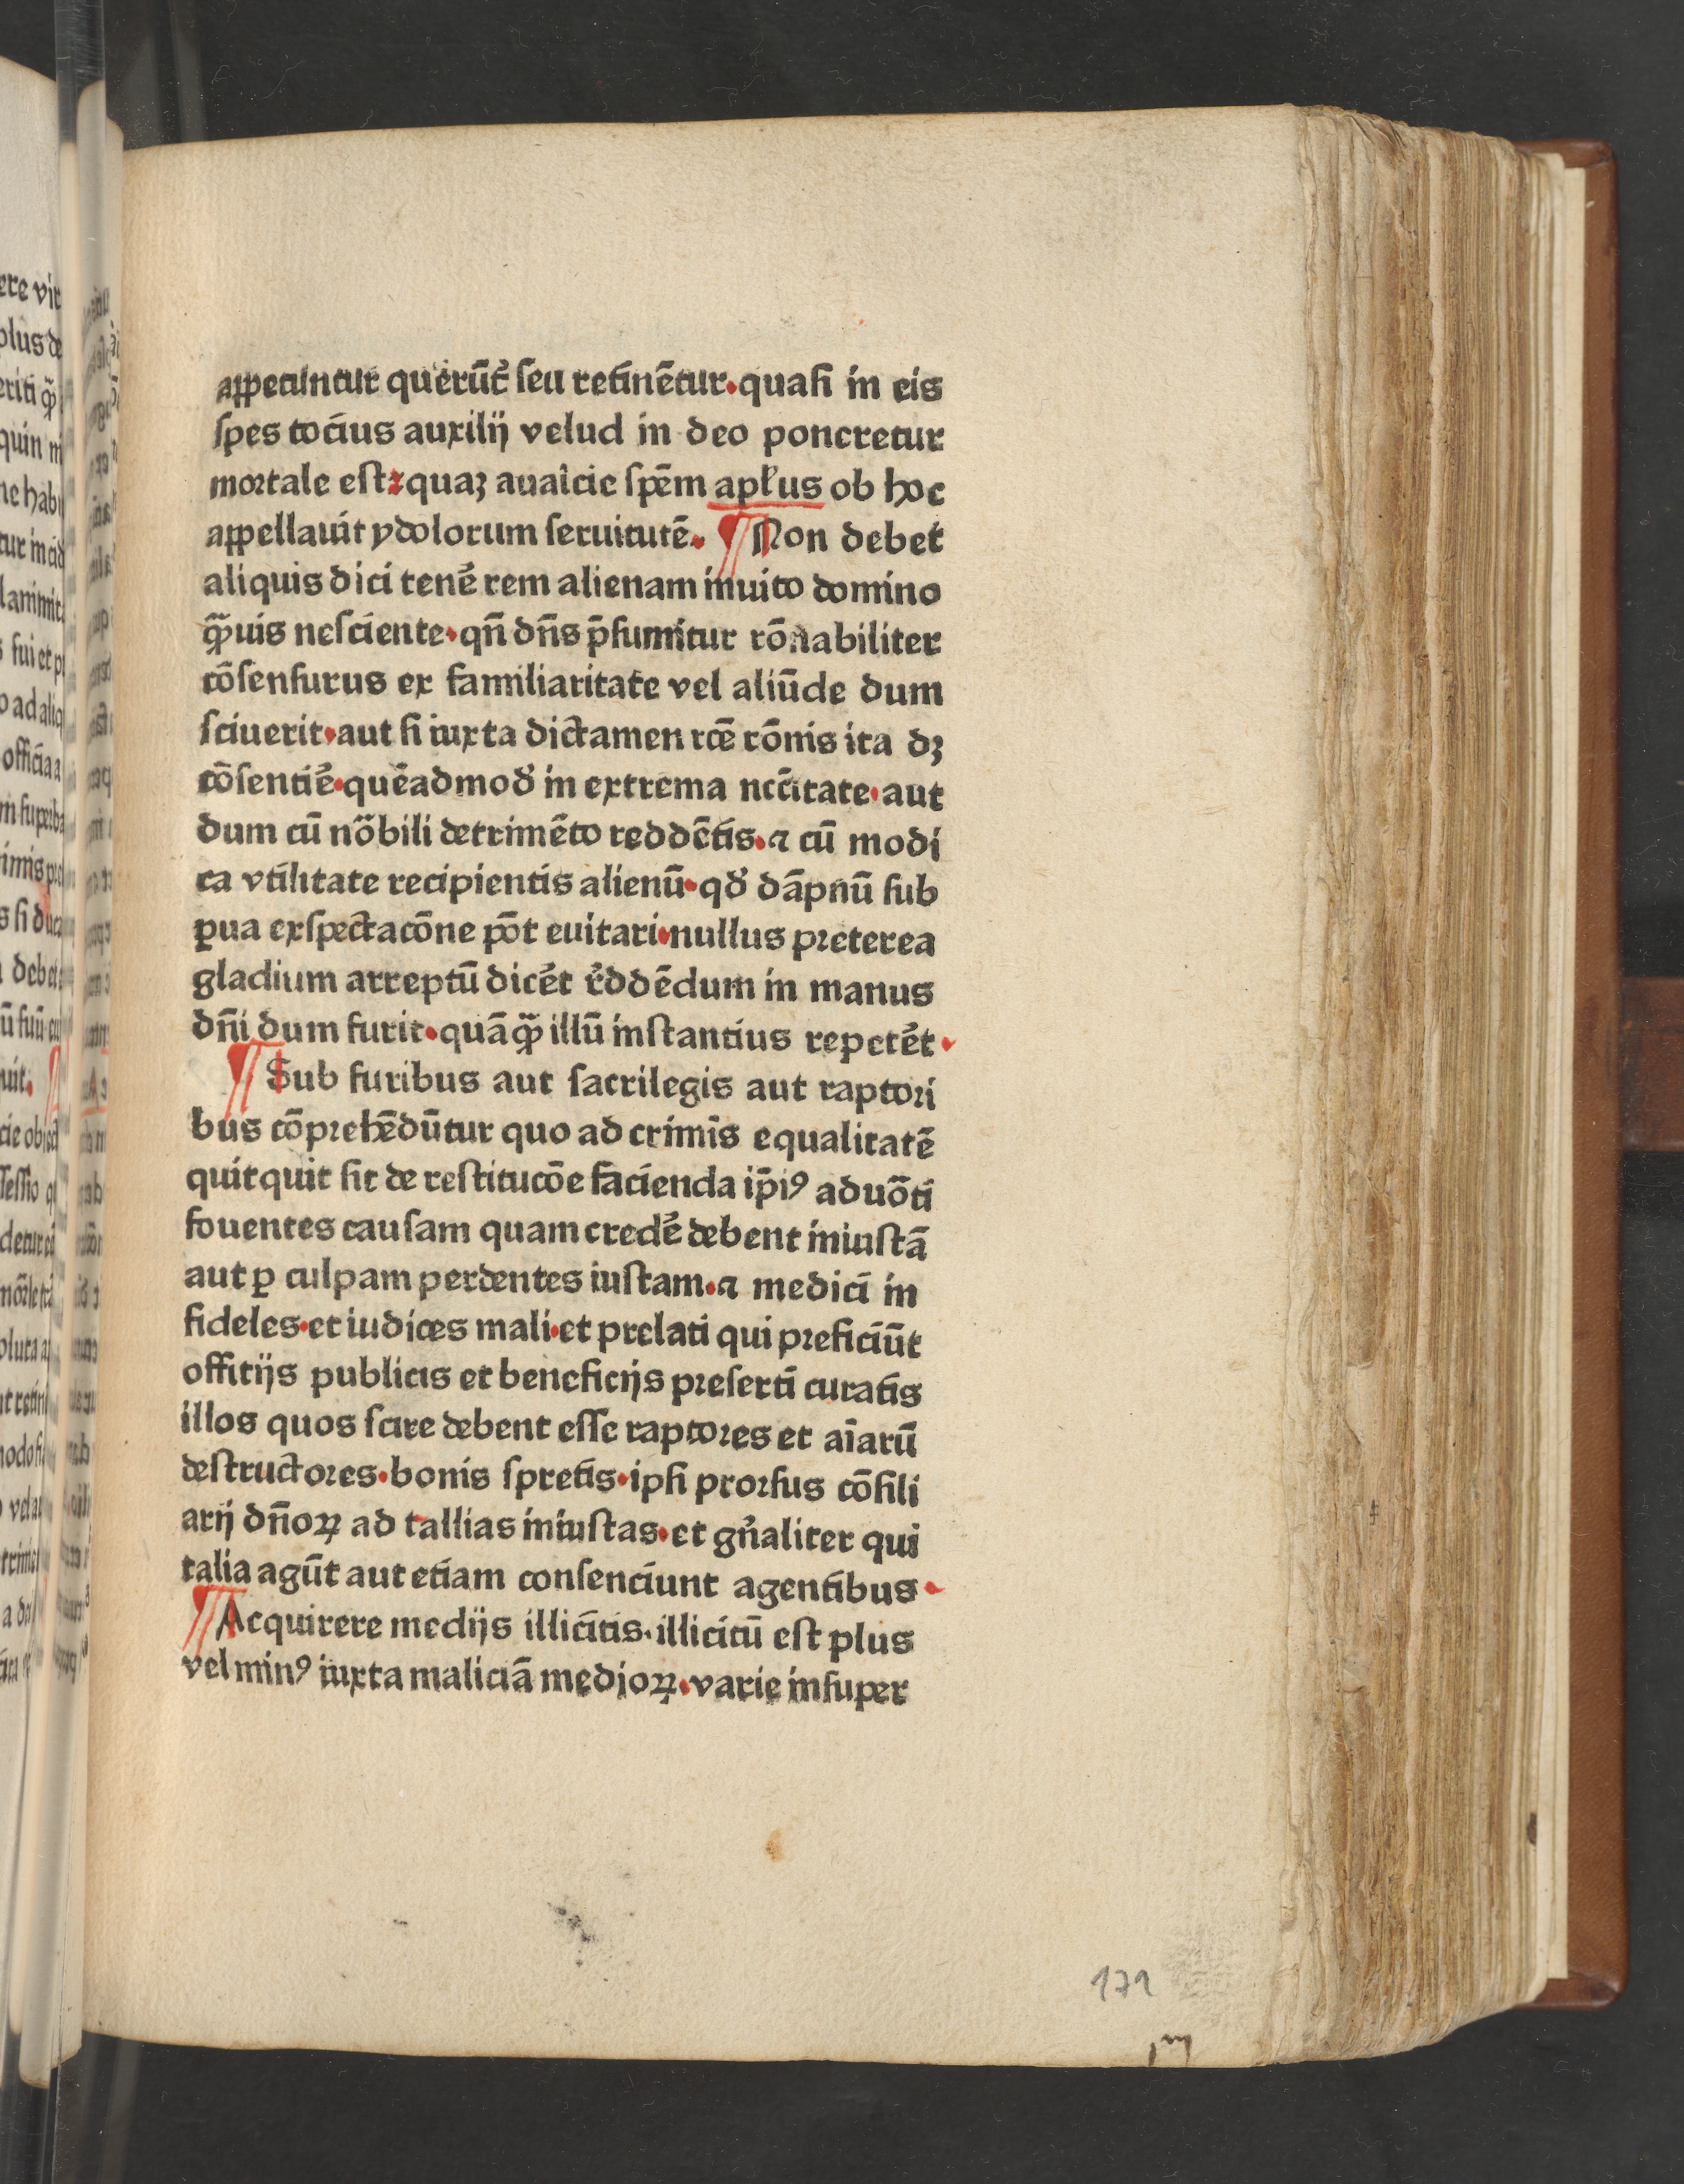 appetuntur querūt᷑ ſeu retinētur·quaſi in eis
ſpes tocius auxilij velud in deo poneretur
moꝛtale eſt·quaꝫ auaicie ſpēm apľus ob hoc
appellauit ydolorum ſeruitutē· ¶ Non debet
aliquis dici tene᷑ rem alienam inuito domino
q̄uis neſciente·qn̄ dn̄s p̄ſumitur rōnabiliter
cōſenſurus ex familiaritate vel aliūde dum
ſciuerit·aut ſi iuxta dictamen rcē rōnis ita dꝫ
cōſentie᷑·quēadmoď in extrema nc̄citate·aut
dum cū nōbili detrimēto reddētis·⁊ cū modi
ca vtilitate recipientis alienū·qď dāpnū ſub
ꝑua exſpectacōne pōt euitari·nullus pꝛeterea
gladium arreptū dice᷑t r᷑ddēdum in manus
dn̄i dum furit·quāq̄ illū inſtantius repete᷑t·
¶ Sub furibus aut ſacrilegis aut raptoꝛi
bus cōpꝛehēdūtur quo ad crimis equalitatē
quitquit ſit de reſtitucōe facienda ip̄iꝰ aduōti
fouentes cauſam quam crede᷑ debent iniuſtā
aut ꝑ culpam perdentes iuſtam·⁊ medici in
fideles·et iudices mali·et prelati qui pꝛeficiūt
offitijs publicis et beneficijs pꝛeſertī curatis
illos quos ſcire debent eſſe raptoꝛes et aīarū
deſtructoꝛes·bonis ſpretis·ipſi proꝛſus cōſili
arij dn̄oꝝ ad tallias iniuſtas·et gn᷑aliter qui
talia agūt aut etiam conſenciunt agentibus·
¶ Acquirere medijs illicitis·illicitū eſt plus
vel minꝰ iuxta maliciā medioꝝ·varie inſuper
171